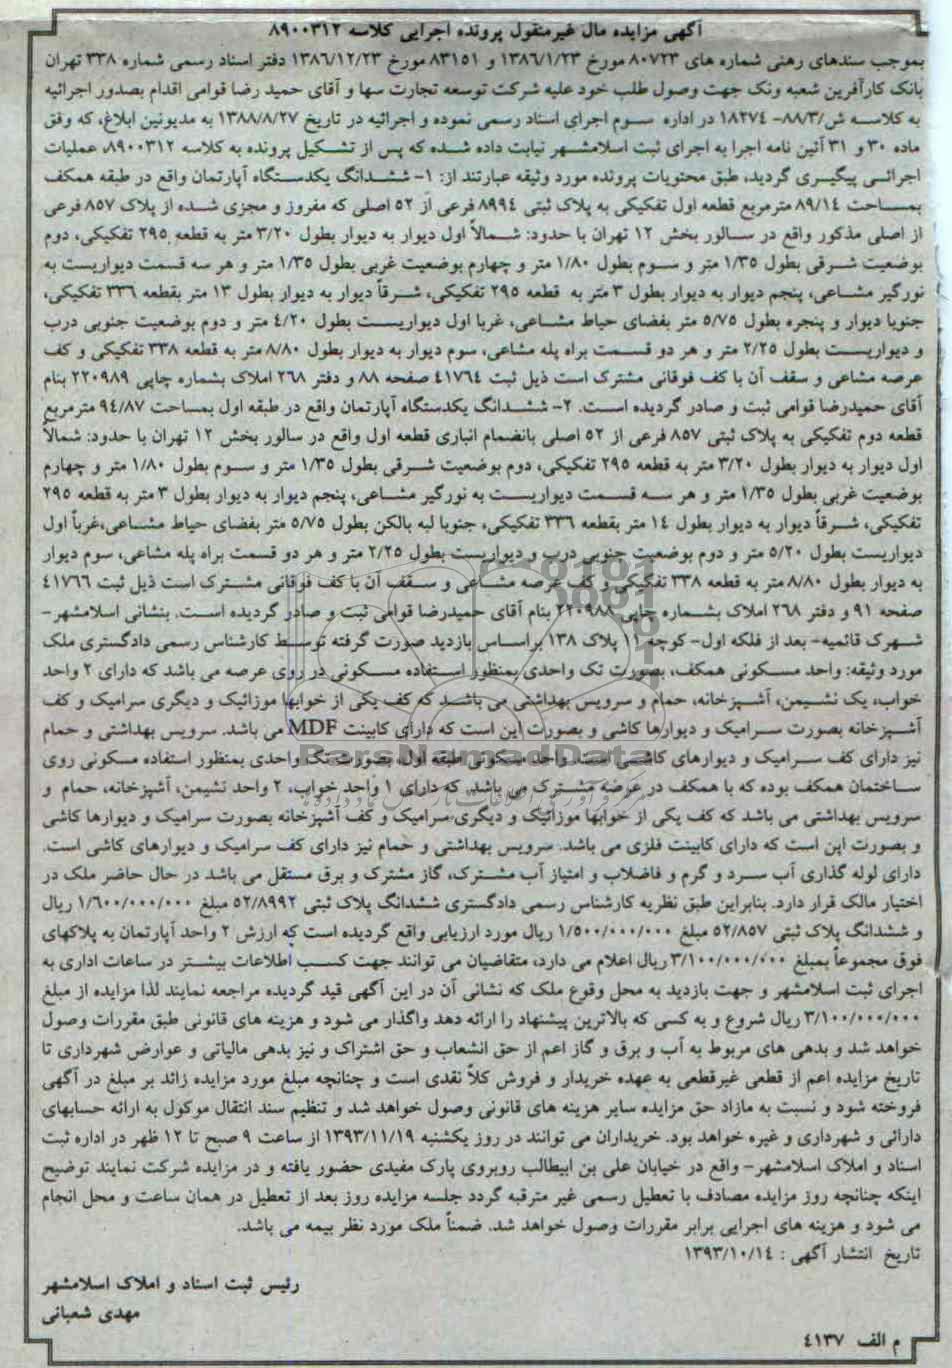 آگهی مزایده مال غیرمنقول پرونده اجرایی کلاسه ۸۹۰۰۳۱۲
بموجب سندهای رهنی شماره های ۸۰۷۲۳ مورخ ۱۳۸۶/۱/۲۳ و ۸۳۱۵۱ مورخ ۱۳۸۶/۱۲/۲۳ دفتر اسناد رسمی شماره ۳۳۸ تهران
بانک کارآفرین شعبه ونک جهت وصول طلب خود علیه شرکت توسعه تجارت سها و آقای حمید رضا قوامی اقدام بصدور اجرائیه
به کلاسه ش/۸۸/۳- ۱۸۲۷۴ در اداره سوم اجرای اسناد رسمی نموده و اجرائیه در تاریخ ۱۳۸۸/۸/۲۷ به مدیونین ابلاغ، که وفق
ماده ۳۰ و ۳۱ آئین نامه اجرا به اجرای ثبت اسلامشهر نیابت داده شده که پس از تشکیل پرونده به کلاسه ۸۹۰۰۳۱۲، عملیات
اجرائی پیگیری گردید، طبق محتویات پرونده مورد وثیقه عبارتند از: ۱- ششدانگ یکدستگاه آپارتمان واقع در طبقه همکف
بمساحت ۸۹/۱۴ مترمربع قطعه اول تفکیکی به پلاک ثبتی ۸۹۹۴ فرعی از ۵۲ اصلی که مفروز و مجزی شده از پلاک ۸۵۷ فرعی
از اصلی مذکور واقع در سالور بخش ۱۲ تهران با حدود: شمالاً اول دیوار به دیوار بطول ۳/۲۰ متر به قطعه ۲۹۵ تفکیکی، دوم
بوضعیت شرقی بطول ۱/۳۵ متر و سوم بطول ۱/۸۰ متر و چهارم بوضعیت غربی بطول ۱/۳۵ متر و هر سه قسمت دیواریست به
نورگیر مشاعی، پنجم دیوار به دیوار بطول ۳ متر به قطعه ۲۹۵ تفکیکی، شرقاً دیوار به دیوار بطول ۱۳ متر بقطعه ۳۳۶ تفکیکی،
جنوبا دیوار و پنجره بطول ۵/۷۵ متر بفضای حیاط مشاعی، غربا اول دیواریست بطول ۴/۲۰ متر و دوم بوضعیت جنوبی درب
و دیواریست بطول ۲/۲۵ متر و هر دو قسمت براه پله مشاعی، سوم دیوار به دیوار بطول ۸/۸۰ متر به قطعه ۳۳۸ تفکیکی و کف
عرصه مشاعی و سقف آن با کف فوقانی مشترک است ذیل ثبت ۴۱۷۶۴ صفحه ۸۸ و دفتر ۲۶۸ املاک بشماره چاپی ۲۲۰۹۸۹ بنام
آقای حمیدرضا قوامی ثبت و صادر گردیده است. ۲- ششدانگ یکدستگاه آپارتمان واقع در طبقه اول بمساحت ۹۴/۸۷ مترمربع
قطعه دوم تفکیکی به پلاک ثبتی ۸۵۷ فرعی از ۵۲ اصلی بانضمام انباری قطعه اول واقع در سالور بخش ۱۲ تهران با حدود: شمالاً
اول دیوار به دیوار بطول ۳/۲۰ متر به قطعه ۲۹۵ تفکیکی، دوم بوضعیت شرقی بطول ۱/۳۵ متر و سوم بطول ۱/۸۰ متر و چهارم
بوضعیت غربی بطول ۱/۳۵ متر و هر سه قسمت دیواریست به نورگیر مشاعی، پنجم دیوار به دیوار بطول ۳ متر به قطعه ۲۹۵
تفکیکی، شرقاً دیوار به دیوار بطول ۱۴ متر بقطعه ۳۳۶ تفکیکی، جنوبا لبه بالکن بطول ۵/۷۵ متر بفضای حیاط مشاعی،غرباً اول
دیواریست بطول ۵/۲۰ متر و دوم بوضعیت جنوبی درب و دیواریست بطول ۲/۲۵ متر و هر دو قسمت براه پله مشاعی، سوم دیوار
به دیوار بطول ۸/۸۰ متر به قطعه ۳۳۸ تفکیکی و کف عرصه مشاعی و سقف آن با کف فوقانی مشترک است ذیل ثبت ۴۱۷۶۶
صفحه ۹۱ و دفتر ۲۶۸ املاک بشماره چاپی ۲۲۰۹۸۸ بنام آقای حمیدرضا قوامی ثبت و صادر گردیده است. بنشانی اسلامشهر-
شهرک قائمیه- بعد از فلکه اول- کوچه ۱۱ پلاک ۱۳۸ براساس بازدید صورت گرفته توسط کارشناس رسمی دادگستری ملک
مورد وثیقه: واحد مسکونی همکف، بصورت تک واحدی بمنظور استفاده مسکونی در روی عرصه می باشد که دارای ۲ واحد
خواب، یک نشیمن، آشپزخانه، حمام و سرویس بهداشتی می باشد که کف یکی از خوابها موزائیک و دیگری سرامیک و کف
آشپزخانه بصورت سرامیک و دیوارها کاشی و بصورت اپن است که دارای کابینت MDF می باشد. سرویس بهداشتی و حمام
نیز دارای کف سرامیک و دیوارهای کاشی است. واحد مسکونی طبقه اول، بصورت تک واحدی بمنظور استفاده مسکونی روی
ParsNamadData
ساختمان همکف بوده که با همکف در عرصه مشترک می باشد که دارای ۱ واحد خواب، ۲ واحد نشیمن، آشپزخانه، حمام و
سرویس بهداشتی می باشد که کف یکی از خوابها موزائیک و دیگری سرامیک و کف آشپزخانه بصورت سرامیک و دیوارها کاشی
و بصورت اپن است که دارای کابینت فلزی می باشد. سرویس بهداشتی و حمام نیز دارای کف سرامیک و دیوارهای کاشی است.
دارای لوله گذاری آب سرد و گرم و فاضلاب و امتیاز آب مشترک، گاز مشترک و برق مستقل می باشد در حال حاضر ملک در
اختیار مالک قرار دارد. بنابراین طبق نظریه کارشناس رسمی دادگستری ششدانگ پلاک ثبتی ۵۲/۸۹۹۲ مبلغ ۱/۶۰۰/۰۰۰/۰۰۰ ریال
و ششدانگ پلاک ثبتی ۵۲/۸۵۷ مبلغ ۱/۵۰۰/۰۰۰/۰۰۰ ریال مورد ارزیابی واقع گردیده است که ارزش ۲ واحد آپارتمان به پلاکهای
فوق مجموعاً بمبلغ ۳/۱۰۰/۰۰۰/۰۰۰ ریال اعلام می دارد، متقاضیان می توانند جهت کسب اطلاعات بیشتر در ساعات اداری به
اجرای ثبت اسلامشهر و جهت بازدید به محل وقوع ملک که نشانی آن در این آگهی قید گردیده مراجعه نمایند لذا مزایده از مبلغ
۳/۱۰۰/۰۰۰/۰۰۰ ریال شروع و به کسی که بالاترین پیشنهاد را ارائه دهد واگذار می شود و هزینه های قانونی طبق مقررات وصول
خواهد شد و بدهی های مربوط به آب و برق و گاز اعم از حق انشعاب و حق اشتراک و نیز بدهی مالیاتی و عوارض شهرداری تا
تاریخ مزایده اعم از قطعی غیرقطعی به عهده خریدار و فروش کلاً نقدی است و چنانچه مبلغ مورد مزایده زائد بر مبلغ در آگهی
فروخته شود و نسبت به مازاد حق مزایده سایر هزینه های قانونی وصول خواهد شد و تنظیم سند انتقال موکول به ارائه حسابهای
دارائی و شهرداری و غیره خواهد بود. خریداران می توانند در روز یکشنبه ۱۳۹۳/۱۱/۱۹ از ساعت ۹ صبح تا ۱۲ ظهر در اداره ثبت
اسناد و املاک اسلامشهر- واقع در خیابان علی بن ابیطالب روبروی پارک مفیدی حضور یافته و در مزایده شرکت نمایند توضیح
اینکه چنانچه روز مزایده مصادف با تعطیل رسمی غیر مترقبه گردد جلسه مزایده روز بعد از تعطیل در همان ساعت و محل انجام
می شود و هزینه های اجرایی برابر مقررات وصول خواهد شد. ضمناً ملک مورد نظر بیمه می باشد.
تاریخ انتشار آگهی : ۱۳۹۳/۱۰/۱۴
رئیس ثبت اسناد و املاک اسلامشهر
مهدی شعبانی
م الف ۴۱۳۷